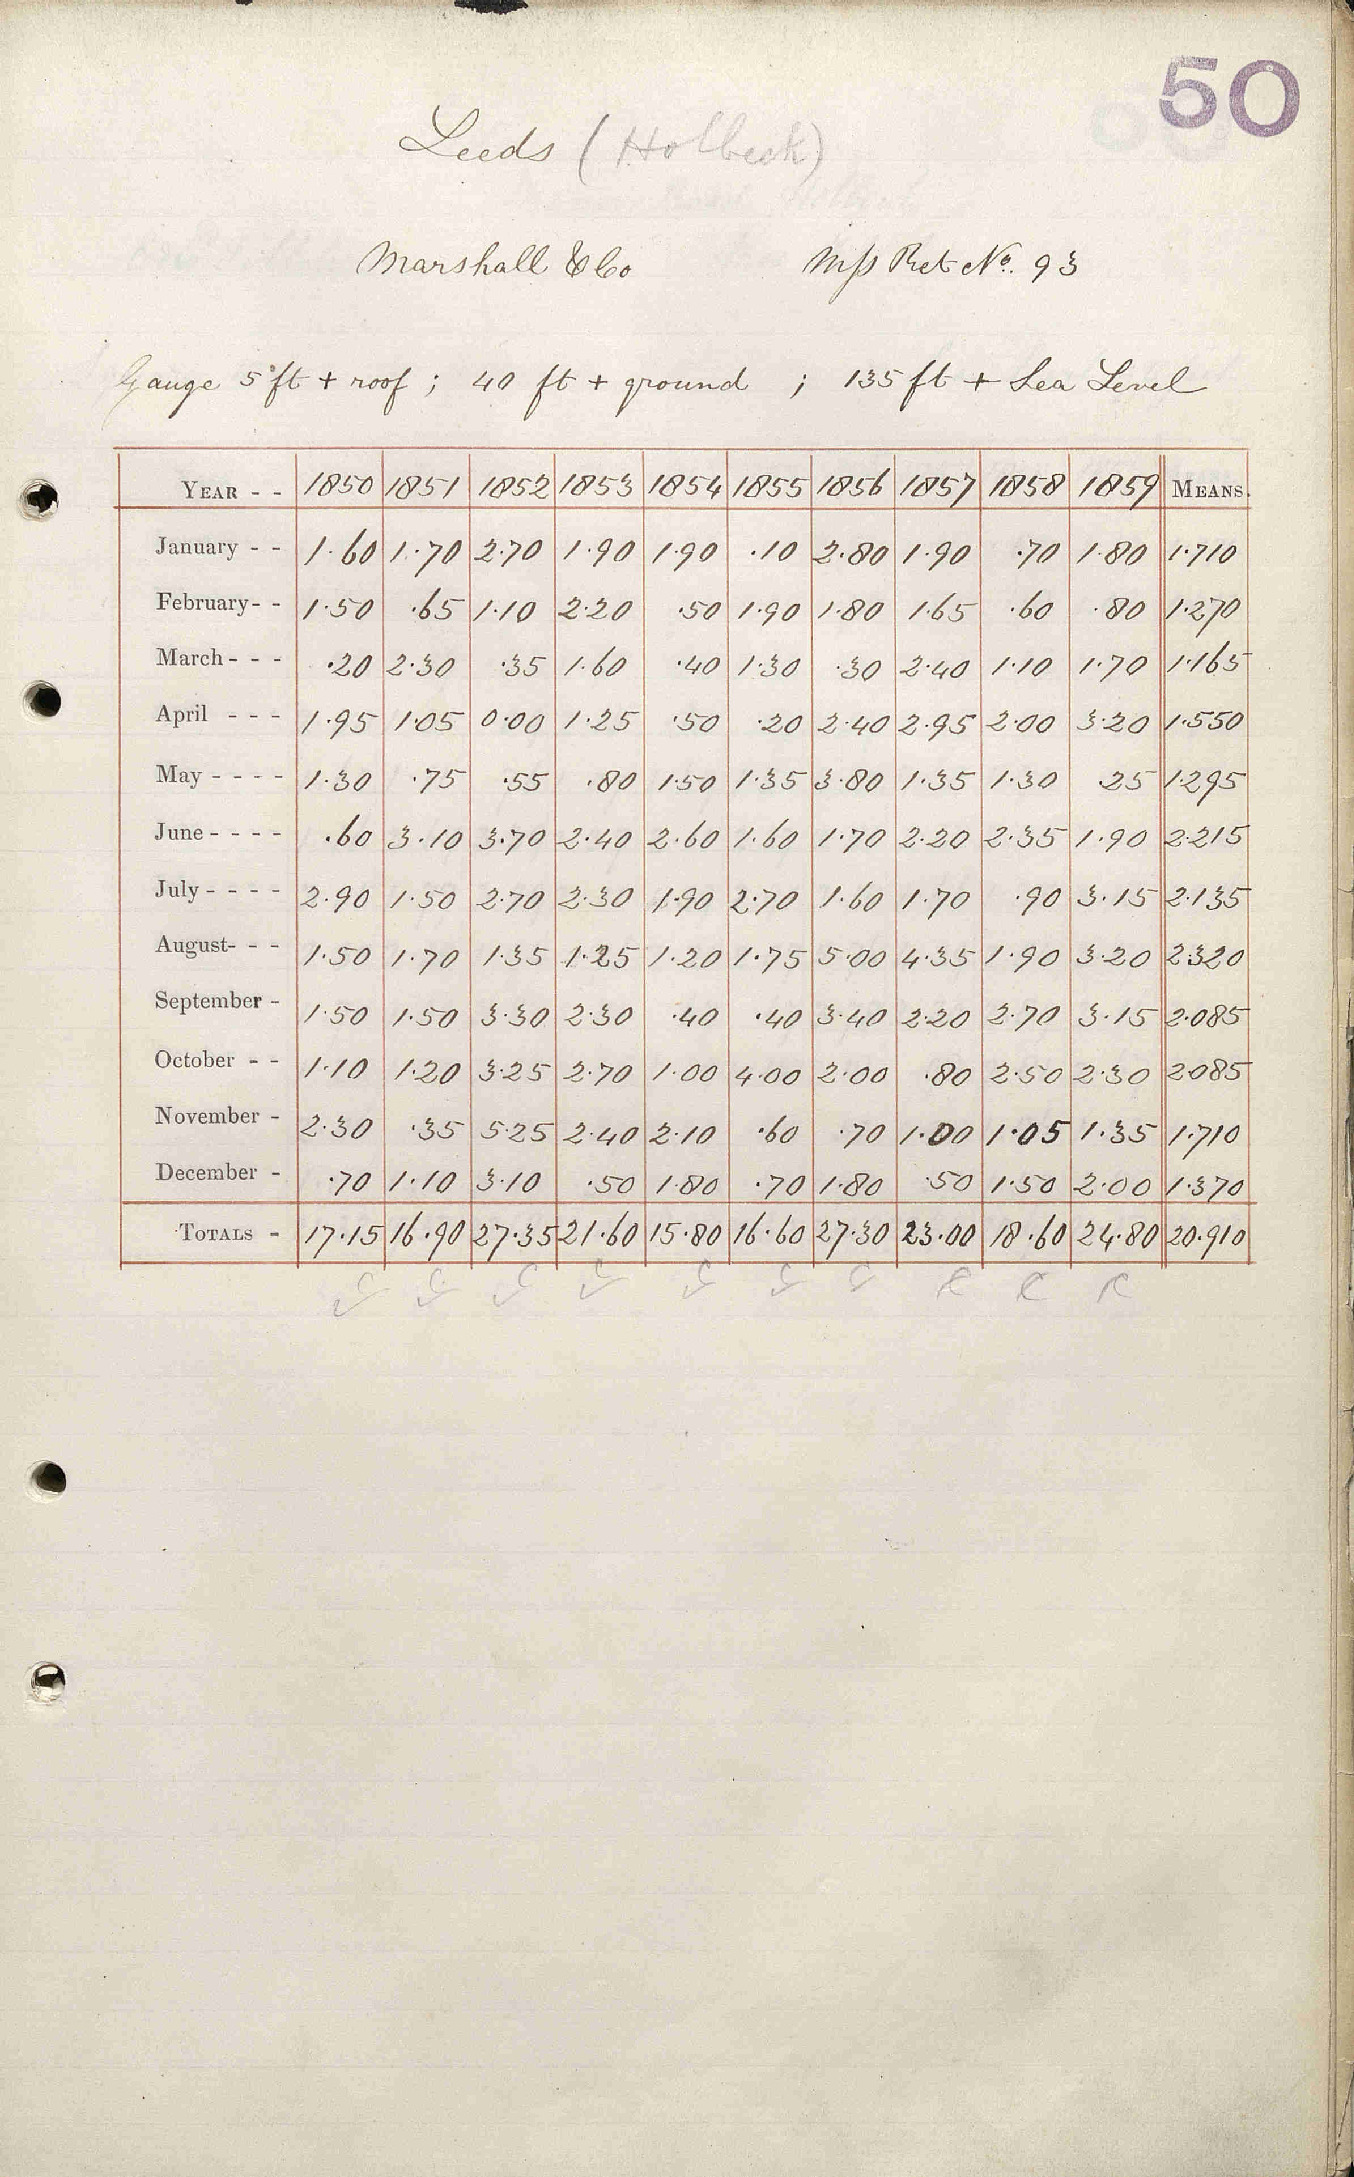 50
Leeds (Holbeck)
Marshall & Co Mss Ret No. 93
Gauge 5 ft + roof ; 40 ft + ground ; 135 ft + Sea Level
YEAR - - 1850 1851 1852 1853 1854 1855 1856 1857 1858 1859 MEANS.
January - - 1.60 1.70 2.70 1.90 1.90 .10 2.80 1.90 .70 1.80 1.710
February- - 1.50 .65 1.10 2.20 .50 1.90 1.80 1.65 .60 .80 1.270
March - - - .20 2.30 .35 1.60 .40 1.30 .30 2.40 1.10 1.70 1.165
April - - - 1.95 1.05 0.00 1.25 .50 .20 2.40 2.95 2.00 3.20 1.550
May - - - - 1.30 .75 .55 .80 1.50 1.35 3.80 1.35 1.30 .25 1.295
June - - - - .60 3.10 3.70 2.40 2.60 1.60 1.70 2.20 2.35 1.90 2.215
July - - - - 2.90 1.50 2.70 2.30 1.90 2.70 1.60 1.70 .90 3.15 2.135
August- - - 1.50 1.70 1.35 1.25 1.20 1.75 5.00 4.35 1.90 3.20 2.320
September - 1.50 1.50 3.30 2.30 .40 .40 3.40 2.20 2.70 3.15 2.085
October - - 1.10 1.20 3.25 2.70 1.00 4.00 2.00 .80 2.50 2.30 2.085
November - 2.30 .35 5.25 2.40 2.10 .60 .70 1.00 1.05 1.35 1.710
December - .70 1.10 3.10 .50 1.80 .70 1.80 .50 1.50 2.00 1.370
TOTALS - 17.15 16.90 27.35 21.60 15.80 16.60 27.30 23.00 18.60 24.80 20.910